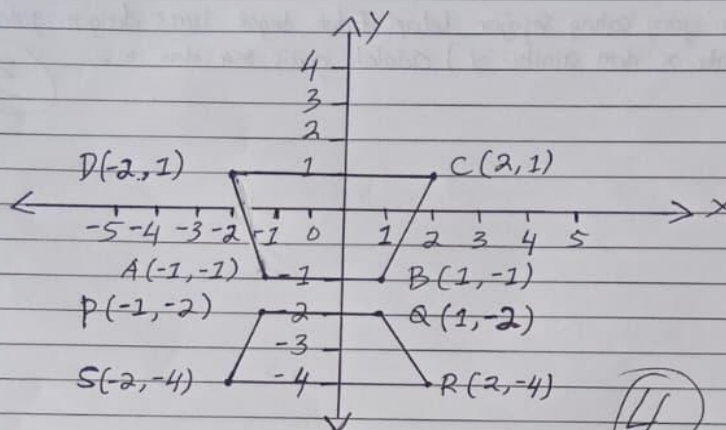 Y
4
3
2
D(-2,1) 1 C(2,1)
X
-5 -4 -3 -2 -1 0 1 2 3 4 5
A(-1,-1) -1 B(1,-1)
P(-1,-2) -2 Q(1,-2)
-3
S(-2,-4) -4 R(2,-4)
4